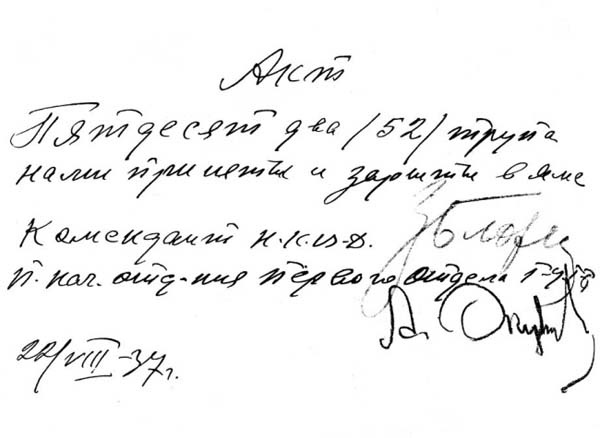 Акт
Пятдесят два /52/ трупа
нами приняты и зарыты в яме
Комендант н.к.в-д.
П. нач. отд-ния первого отдела
22/VIII-37 г.